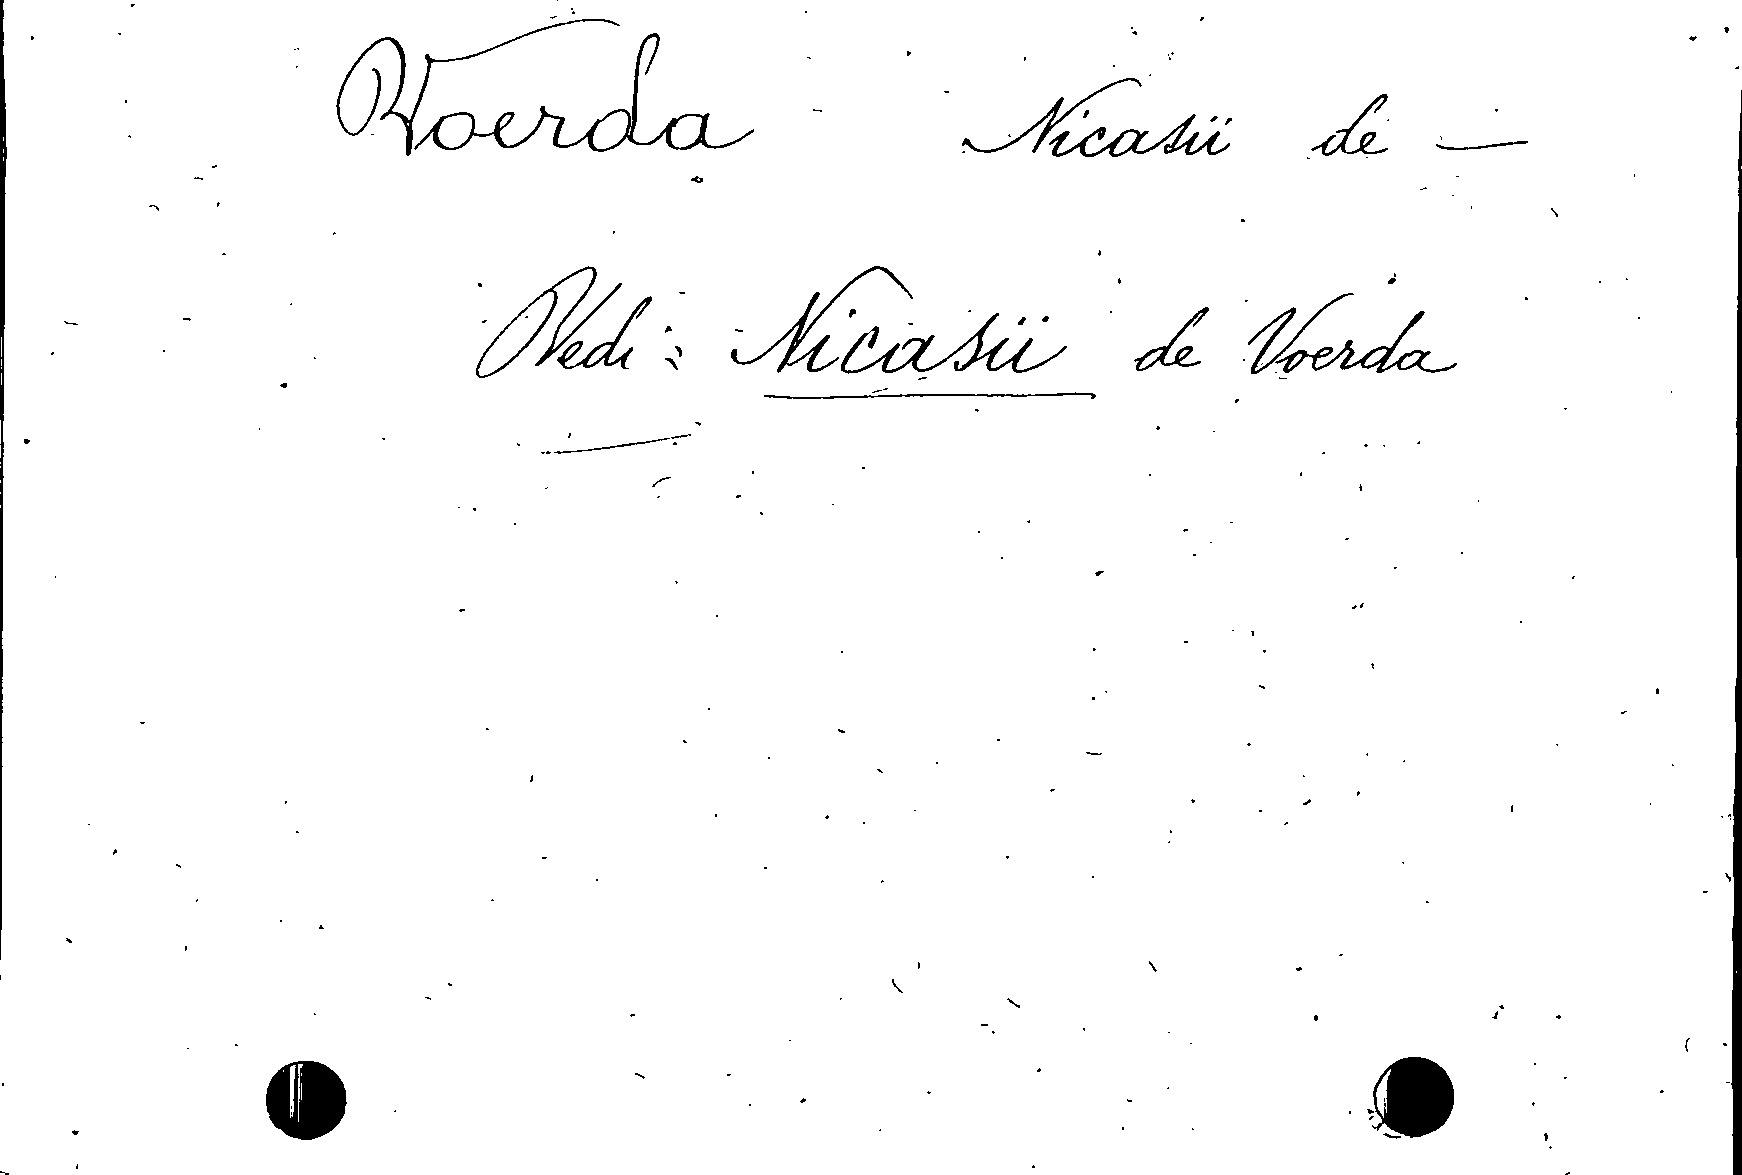 Voerda Nicasii de —
Vedi: Nicasii de Voerda